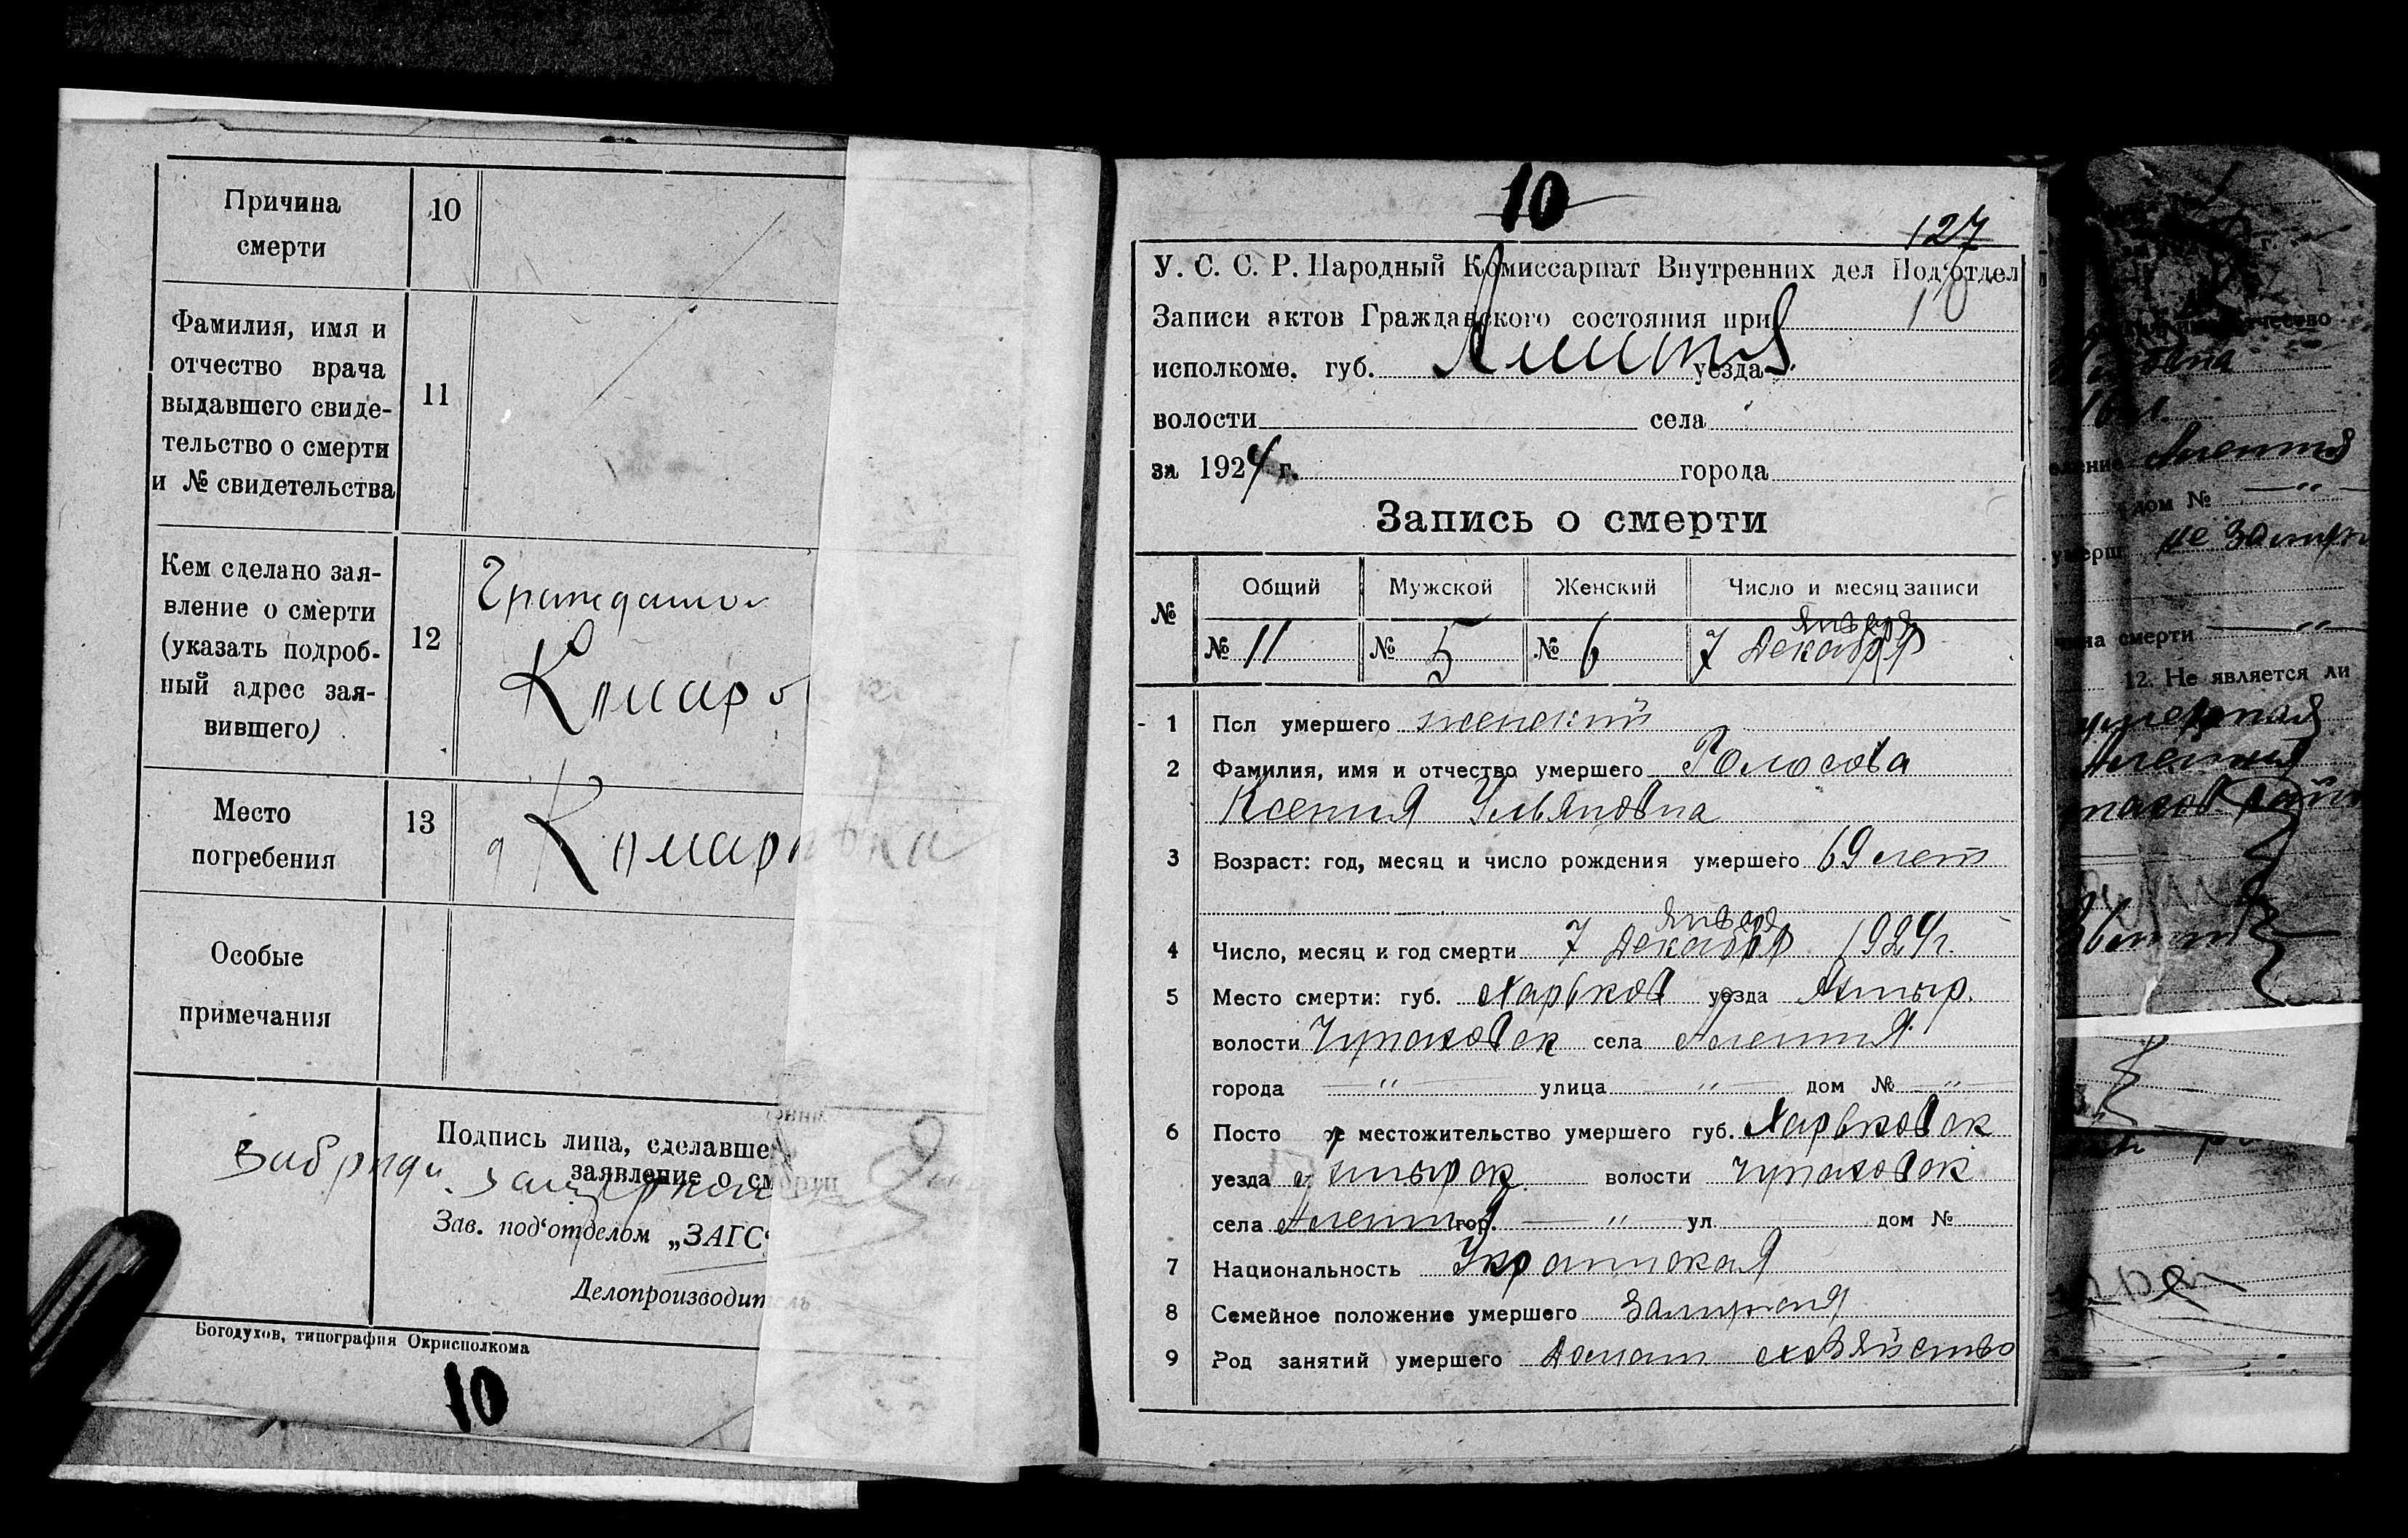 Причина
смерти
10
Фамилия, имя и
отчество врача
выдавшего свиде-
тельство о смерти
и № свидетельства
11
Кем сделано зая-
вление о смерти
(указать подроб-
ный адрес зая-
вившего)
12
Место
погребения
13
Комаровка
Особые
примечания
Подпись лица, сделавше
заявление о см
Зав. под‘отделом „ЗАГС“
Делопроизводитель
Богодухов, типография Окрисполкома
10
10
127
У. С. С. Р. Народный Комиссариат Внутренних дел Под‘отдел
10
Записи актов Гражданского состояния при
исполкоме. губ. уезда
волости села
за 1924 г. города
Запись о смерти
№ Общий Мужской Женский Число и месяц записи
января
№ 11 № 5 № 6 7 Декабря
1 Пол умершего женский
2 Фамилия, имя и отчество умершего Голосова
Ксения Ульяновна
3 Возраст: год, месяц и число рождения умершего 69 лет
января
4 Число, месяц и год смерти 7 Декабря 1924 г.
5 Место смерти: губ. Харьков уезда Ахтыр.
волости Чупаховск села Алешня
города —〃— улица —〃— дом № —〃—
6 Посто е местожительство умершего губ. Харьковск
уезда Ахтырск волости Чупаховск
села Алешня гор. —〃— ул дом №
7 Национальность Украинская
8 Семейное положение умершего Замужняя
9 Род занятий умершего Домаш хозяйство
Алешня
дом № —〃—
умерш не замужн
смерти —〃—
12. Не является ли